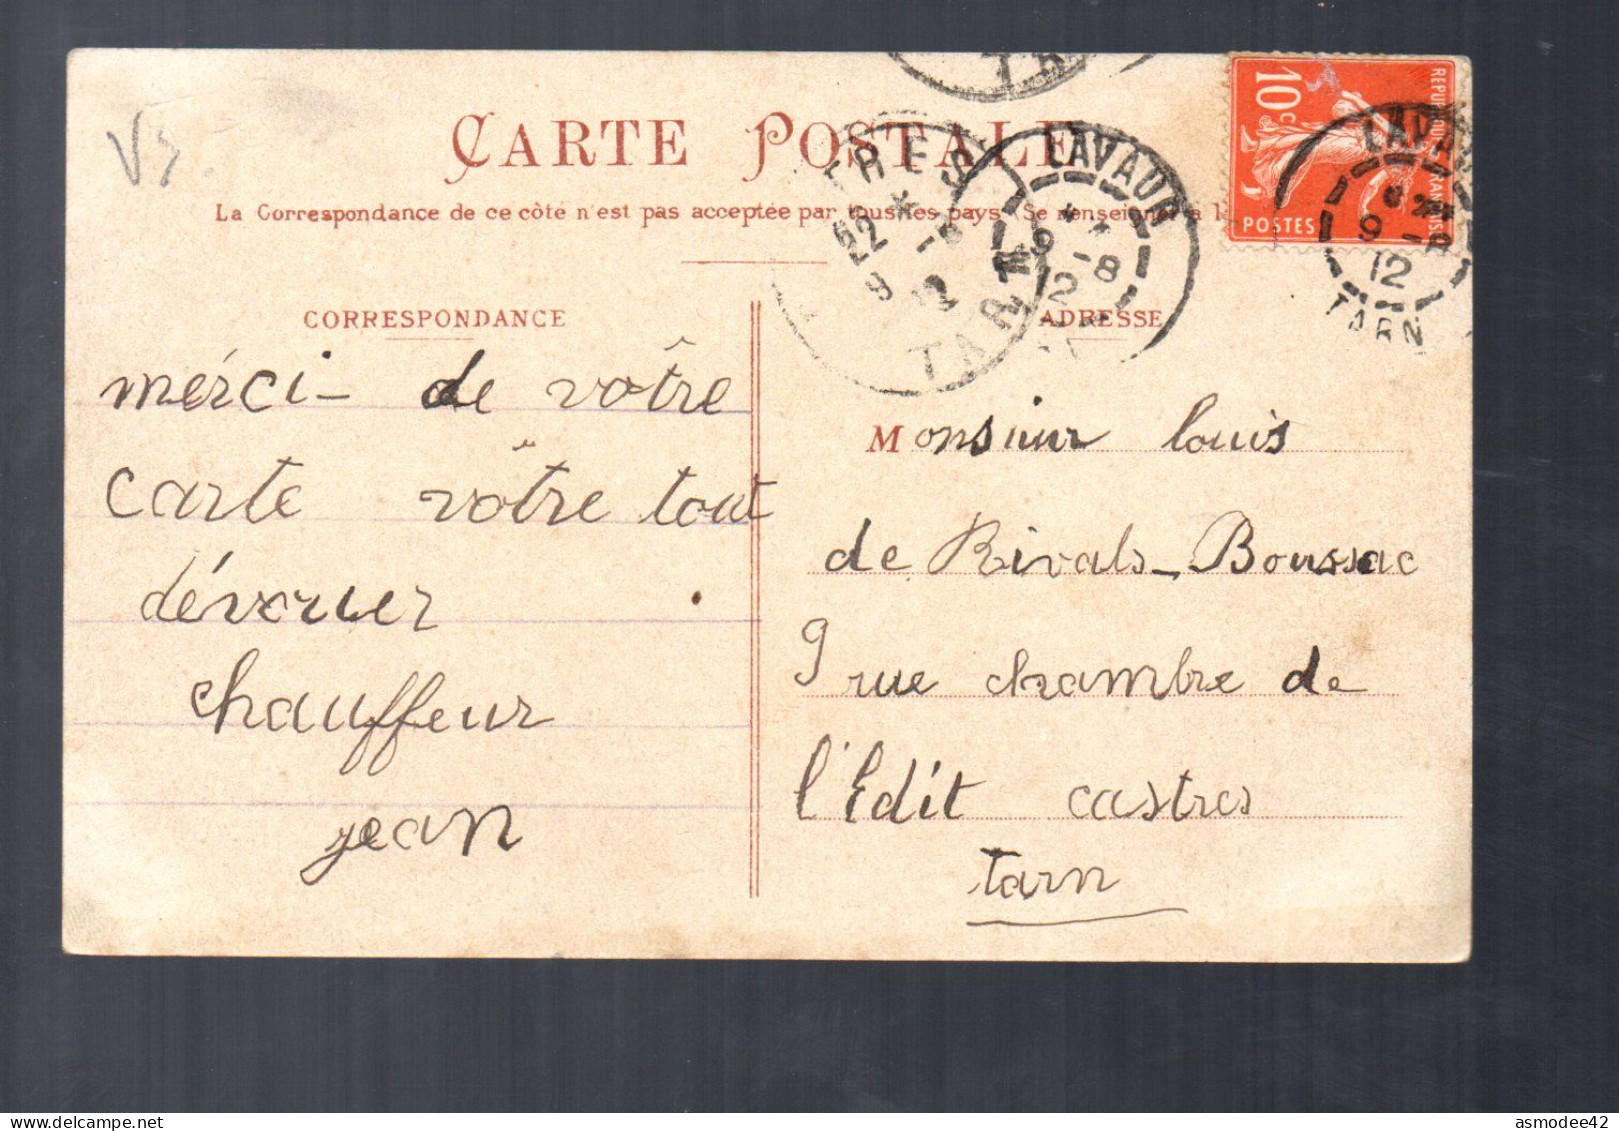 V3
CARTE POSTALE
La Correspondance de ce côté n'est pas acceptée par tous les pays (Se renseigner à la
CORRESPONDANCE
mérci - de vôtre
carte vôtre tout
dévoruer
chauffeur
jean
TRES
22 *
9 -8
12
TARN
LAVAUR
* *
9 -8
12
10c
POSTES
LAVAUR
9 -8
12
TARN
ADRESSE
Monsieur louis
de Rivals-Boussac
9 rue chambre de
l'Edit castres
tarn
asmodee42